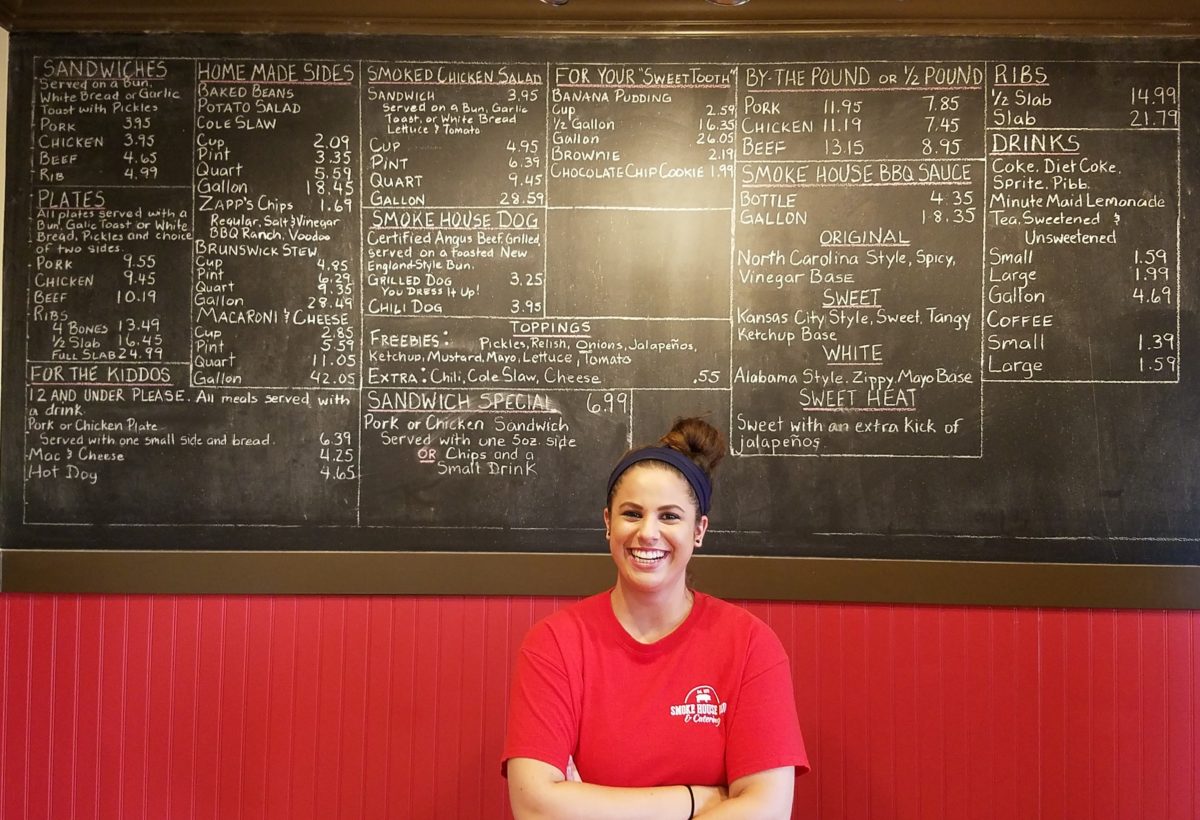 SANDWICHES
Served on a Bun,
White Bread or Garlic
Toast with Pickles
PORK 3.95
CHICKEN 3.95
BEEF 4.65
RIB 4.99
PLATES
All plates served with a
Bun, Galic Toast or White
Bread, Pickles and choice
of two sides.
PORK 9.55
CHICKEN 9.45
BEEF 10.19
RIBS
4 BONES 13.49
1/2 SLAB 16.45
FULL SLAB 24.99
FOR THE KIDDOS
12 AND UNDER PLEASE. All meals served with
a drink.
Pork or Chicken Plate
Served with one small side and bread. 6.39
Mac & Cheese 4.25
Hot Dog 4.65
HOME MADE SIDES
BAKED BEANS
POTATO SALAD
COLE SLAW
Cup 2.09
Pint 3.35
Quart 5.59
Gallon 18.45
ZAPP'S Chips 1.69
Regular, Salt & Vinegar
BBQ Ranch, Voodoo
BRUNSWICK STEW
Cup 4.85
Pint 6.29
Quart 9.35
Gallon 28.49
MACARONI & CHEESE
Cup 2.85
Pint 5.59
Quart 11.05
Gallon 42.05
SMOKED CHICKEN SALAD
SANDWICH 3.95
Served on a Bun, Garlic
Toast, or White Bread
Lettuce & Tomato
CUP 4.95
PINT 6.39
QUART 9.45
GALLON 28.59
SMOKE HOUSE DOG
Certified Angus Beef, Grilled,
served on a toasted New
England-Style Bun.
GRILLED DOG 3.25
YOU DRESS IT UP!
CHILI DOG 3.95
TOPPINGS
FREEBIES: Pickles, Relish, Onions, Jalapeños,
Ketchup, Mustard, Mayo, Lettuce, Tomato
EXTRA: Chili, Cole Slaw, Cheese .55
SANDWICH SPECIAL 6.99
Pork or Chicken Sandwich
Served with one 5oz. side
OR Chips and a
Small Drink
FOR YOUR "SWEET TOOTH"
BANANA PUDDING
Cup 2.59
1/2 Gallon 16.35
Gallon 26.05
BROWNIE 2.19
CHOCOLATE CHIP COOKIE 1.99
BY-THE POUND OR 1/2 POUND
PORK 11.95 7.85
CHICKEN 11.19 7.45
BEEF 13.15 8.95
SMOKE HOUSE BBQ SAUCE
BOTTLE 4.35
GALLON 18.35
ORIGINAL
North Carolina Style, Spicy,
Vinegar Base
SWEET
Kansas City Style, Sweet, Tangy
Ketchup Base
WHITE
Alabama Style. Zippy, Mayo Base
SWEET HEAT
Sweet with an extra Kick of
jalapeños.
RIBS
1/2 Slab 14.99
Slab 21.79
DRINKS
Coke, Diet Coke,
Sprite, Pibb,
Minute Maid Lemonade
Tea, Sweetened &
Unsweetened
Small 1.59
Large 1.99
Gallon 4.69
COFFEE
Small 1.39
Large 1.59
SMOKE HOUSE
& Catering